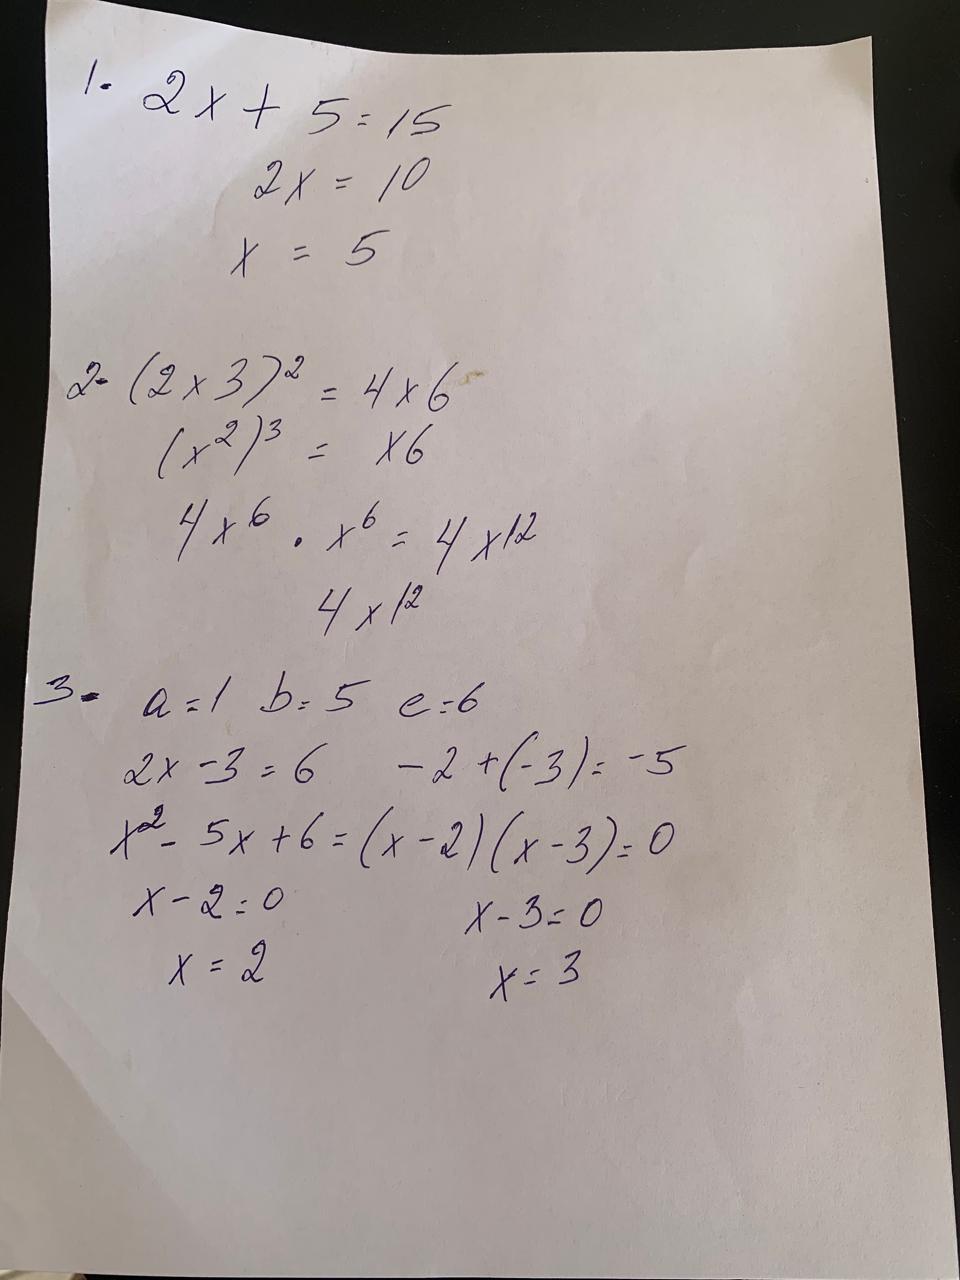 1. 2x + 5 = 15
2x = 10
x = 5
2. (2x3)² = 4x6
(x²)³ = x6
4x⁶ · x⁶ = 4x12
4x¹²
3. a=1 b=5 c=6
2x -3 = 6 -2 + (-3) = -5
x² - 5x + 6 = (x-2)(x-3) = 0
x - 2 = 0 x - 3 = 0
x = 2 x = 3